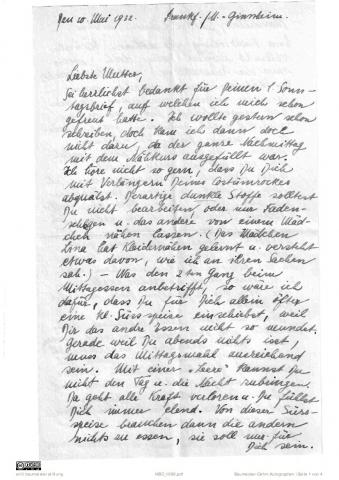 Den 10. Mai 1932. Frankf. /M.- Ginnheim.
Liebste Mutter,
Sei herzlichst bedankt für Deinen l. Sonn-
tagsbrief, auf welchen ich mich schon
gefreut hatte. Ich wollte gestern schon
schreiben, doch kam ich dann doch
nicht dazu, da der ganze Nachmittag
mit dem Nähkurs ausgefüllt war.
Ich höre nicht so gern, dass Du Dich
mit Verlängern Deines Costümrockes
abquälst. Derartige dunkle Stoffe solltest
Du nicht bearbeiten, oder nur Faden-
schlagen u. das andere von einem Mäd-
chen nähen lassen. (Das Mädchen
Lina hat Kleidernähen gelernt u. versteht
etwas davon, wie ich an ihren Sachen
sah.) - Was den 2ten Gang beim
Mittagessen anbetrifft, so wäre ich
dafür, dass Du für Dich allein öfter
eine kl. Süssspeise einschiebst, weil
Dir das andre Essen nicht so mundet.
Gerade weil Du abends nichts isst,
muss das Mittagsmahl ausreichend
sein. Mit einer "Leere" kannst Du
nicht den Tag u. die Nacht zubringen.
Da geht alle Kraft verloren u. Du fühlst
Dich immer elend. Von dieser Süss-
speise brauchen dann die andern
nichts zu essen, sie soll nur für
Dich sein.